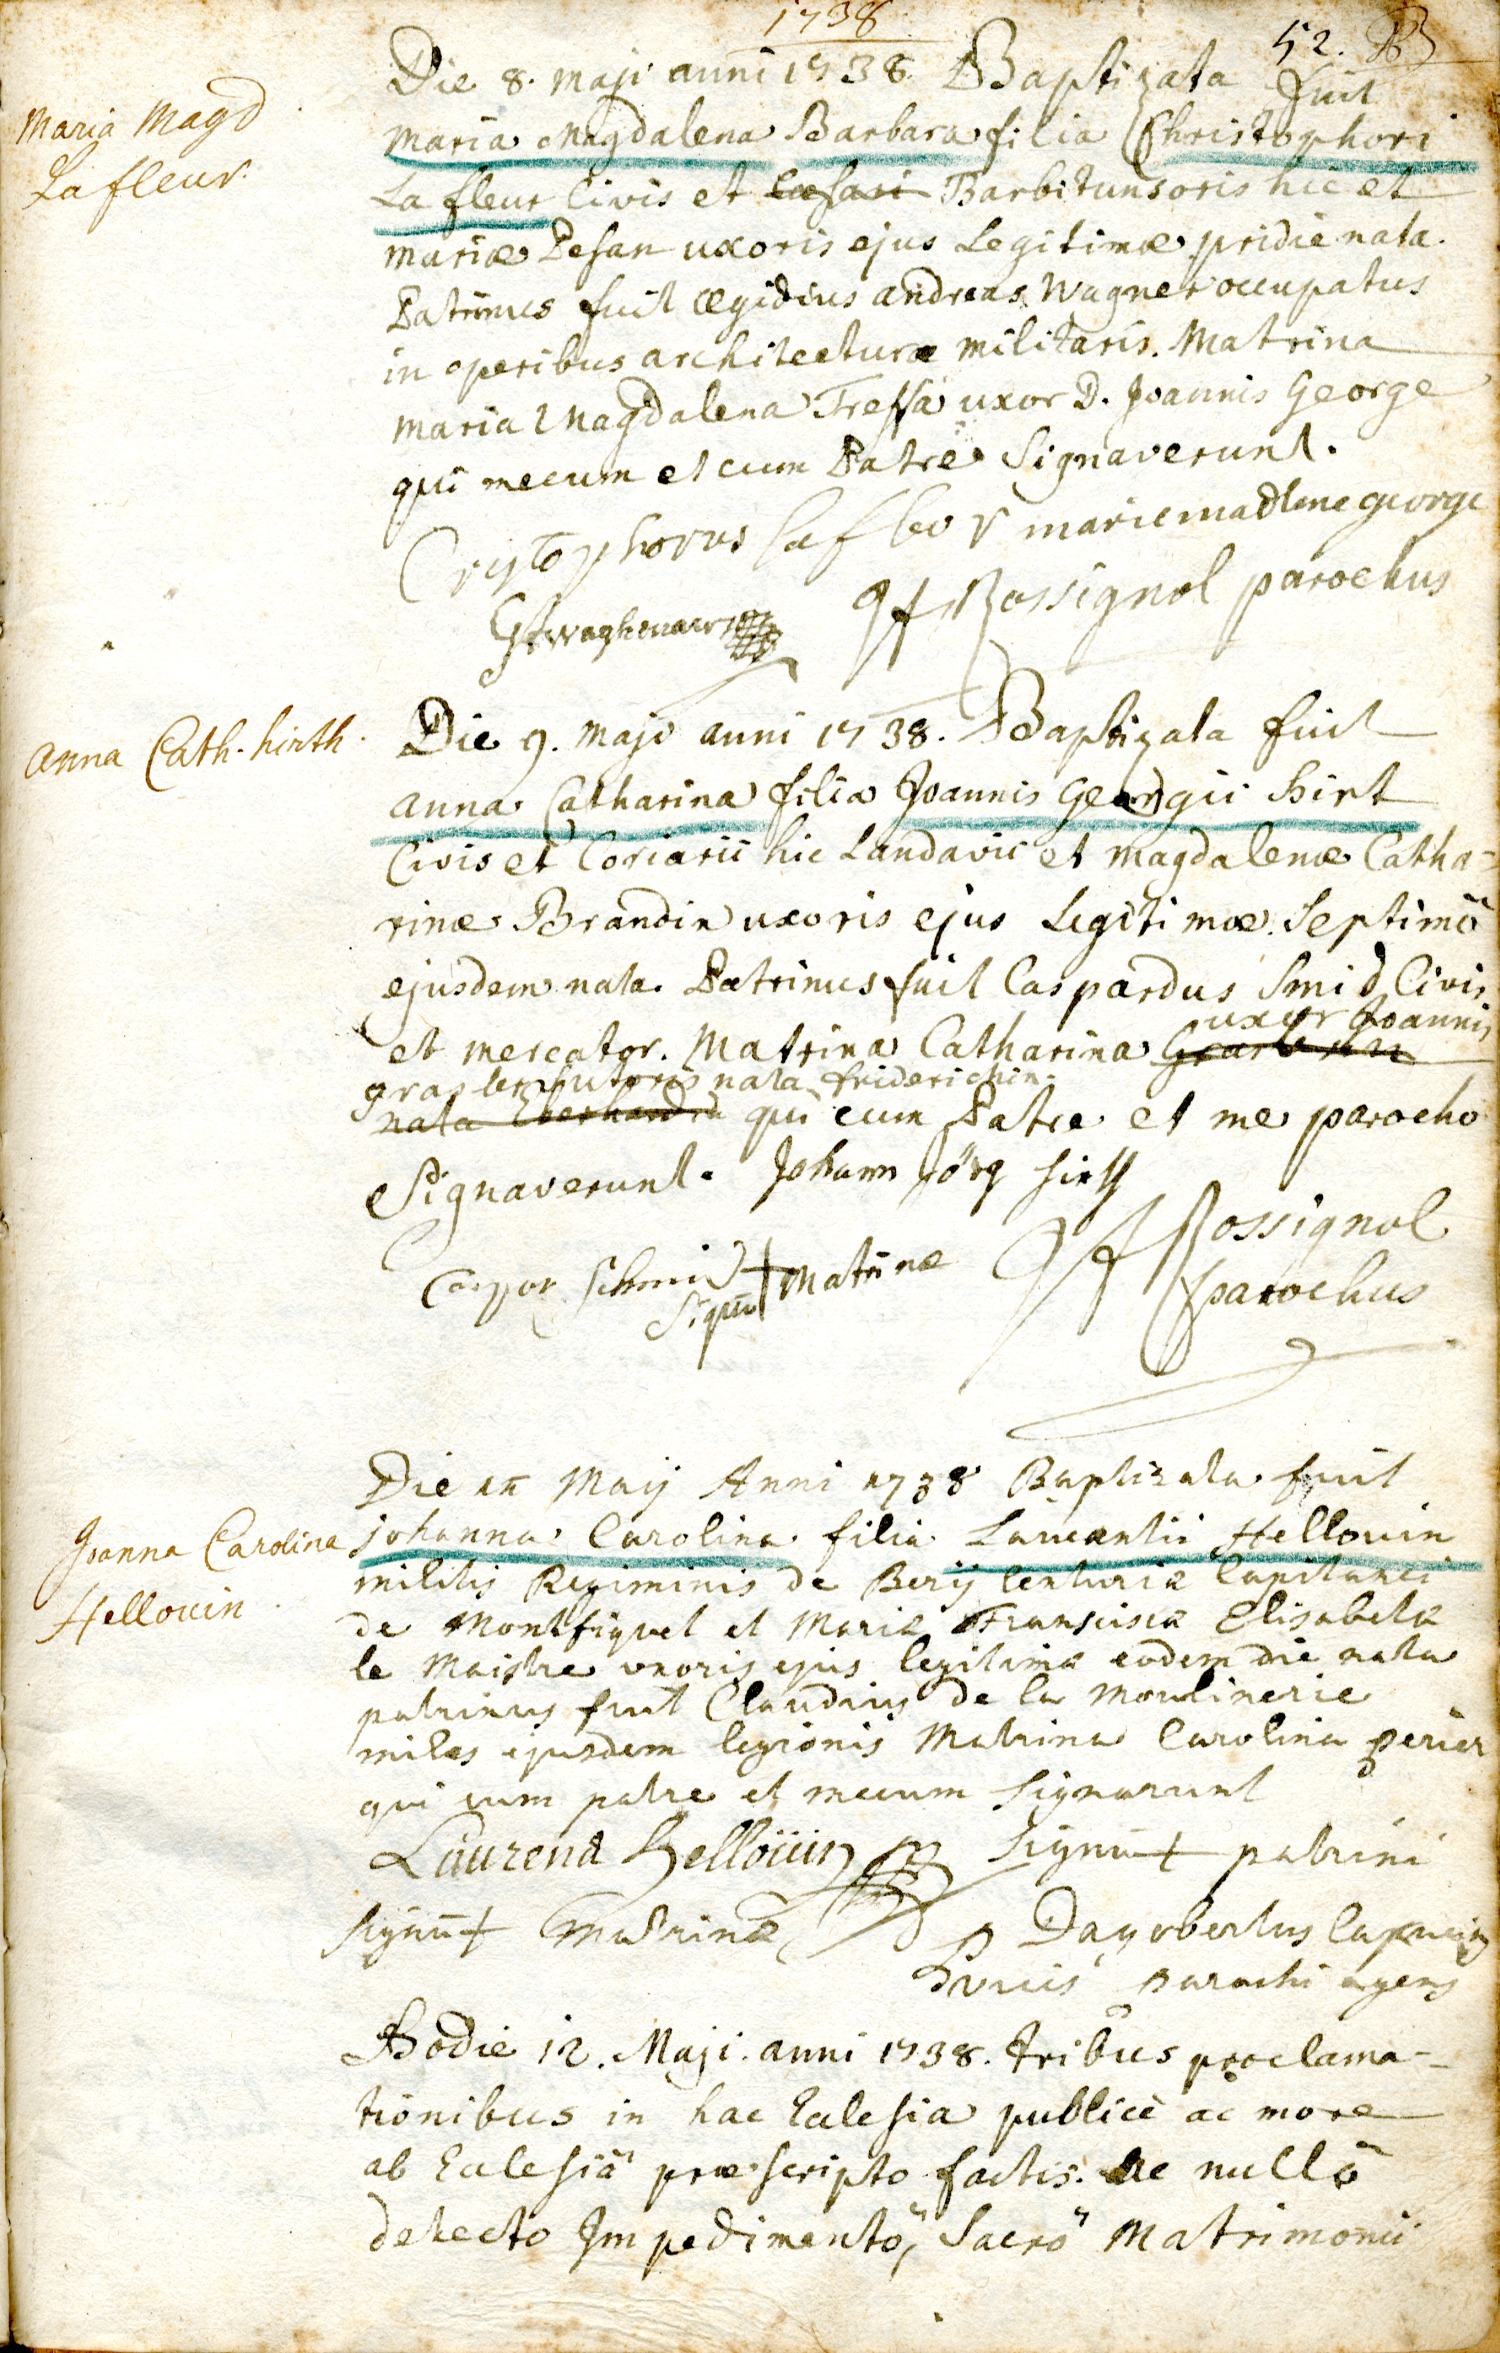 1738
52.
Maria Magd
La fleur.
Die 8. maji anni 1738. Baptizata fuit
maria Magdalena Barbara filia Christophori
La fleur Civis et Barbitunsoris hic et
mariæ Pesan uxoris ejus Legitimæ pridie nata.
Patrinus fuit ægidius andreas Wagner occupatus
in operibus architecturæ militaris. Matrina
maria Magdalena Tressa uxor D. Joannis George
qui mecum et cum Patre Signaverunt.
Cristophorus lafleor marie madlene george
Rossignol parochus
anna Cath. hirth.
Die 9. maji anni 1738. Baptizata fuit
anna Catharina filia Joannis Georgii hirt
Civis et Coriarii hic Landavii et magdalenæ Catha-
rinæ Brandin uxoris ejus Legitimæ Septimâ
ejusdem nata. Patrinus fuit Caspardus Smid Civis
uxor Joannis
et mercator. Matrina Catharina
grasler sutoris nata friderichin.
nata Eberhardin qui cum Patre et me parocho
Signaverunt. Johann Jörg hirth
Caspar Schmid Signū + Matrinæ
Rossignol
parochus
Joanna Carolina
Hellouin
Die 11 Maij Anni 1738 Baptizata fuit
johanna Carolina filia Laurentii Hellouin
militis Regiminis de Berij Centuriæ Capitanei
de Montfiquet et Mariæ Franciscæ Elisabetæ
le Maistre uxoris ejus legitimæ eodem die nata
patrinus fuit Claudius de la Moulinerie
miles ejusdem legionis Matrina Carolina perier
qui cum patre et mecum signarunt
Laurend Hellouin Signū + patrini
signū + Matrinæ
P Dagobertus Capucin
vices parochi agens
Hodie 12. Maji anni 1738. tribus proclama-
tionibus in hac Eclesia publicè ac more
ab Eclesiâ præscripto factis. ac nullô
detecto Impedimento, Sacro Matrimonii